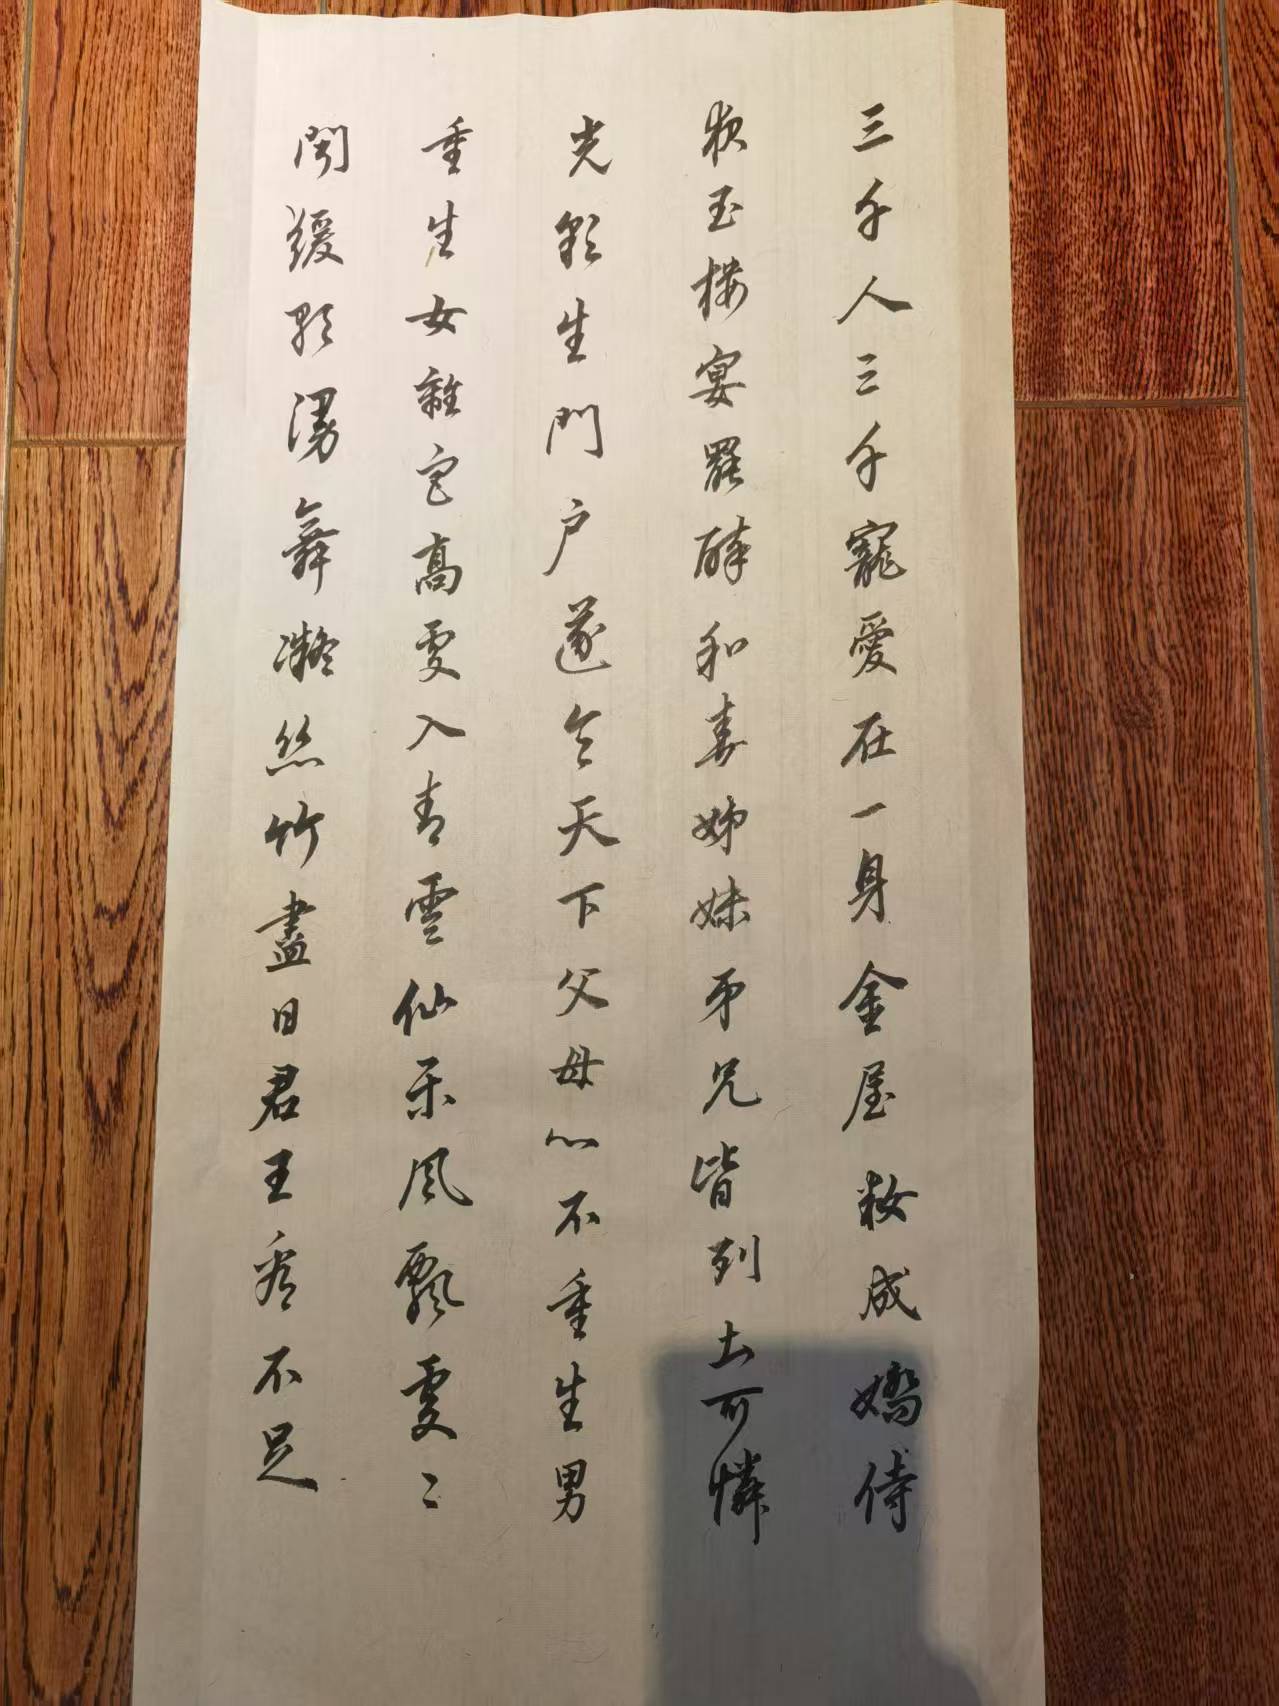 三千人三千寵愛在一身金屋妝成嬌侍
夜玉樓宴罷醉和春姊妹弟兄皆列土可憐
光彩生門户遂令天下父母心不重生男
重生女驪宫高處入青雲仙樂風飄處〻
聞緩歌漫舞凝絲竹盡日君王看不足